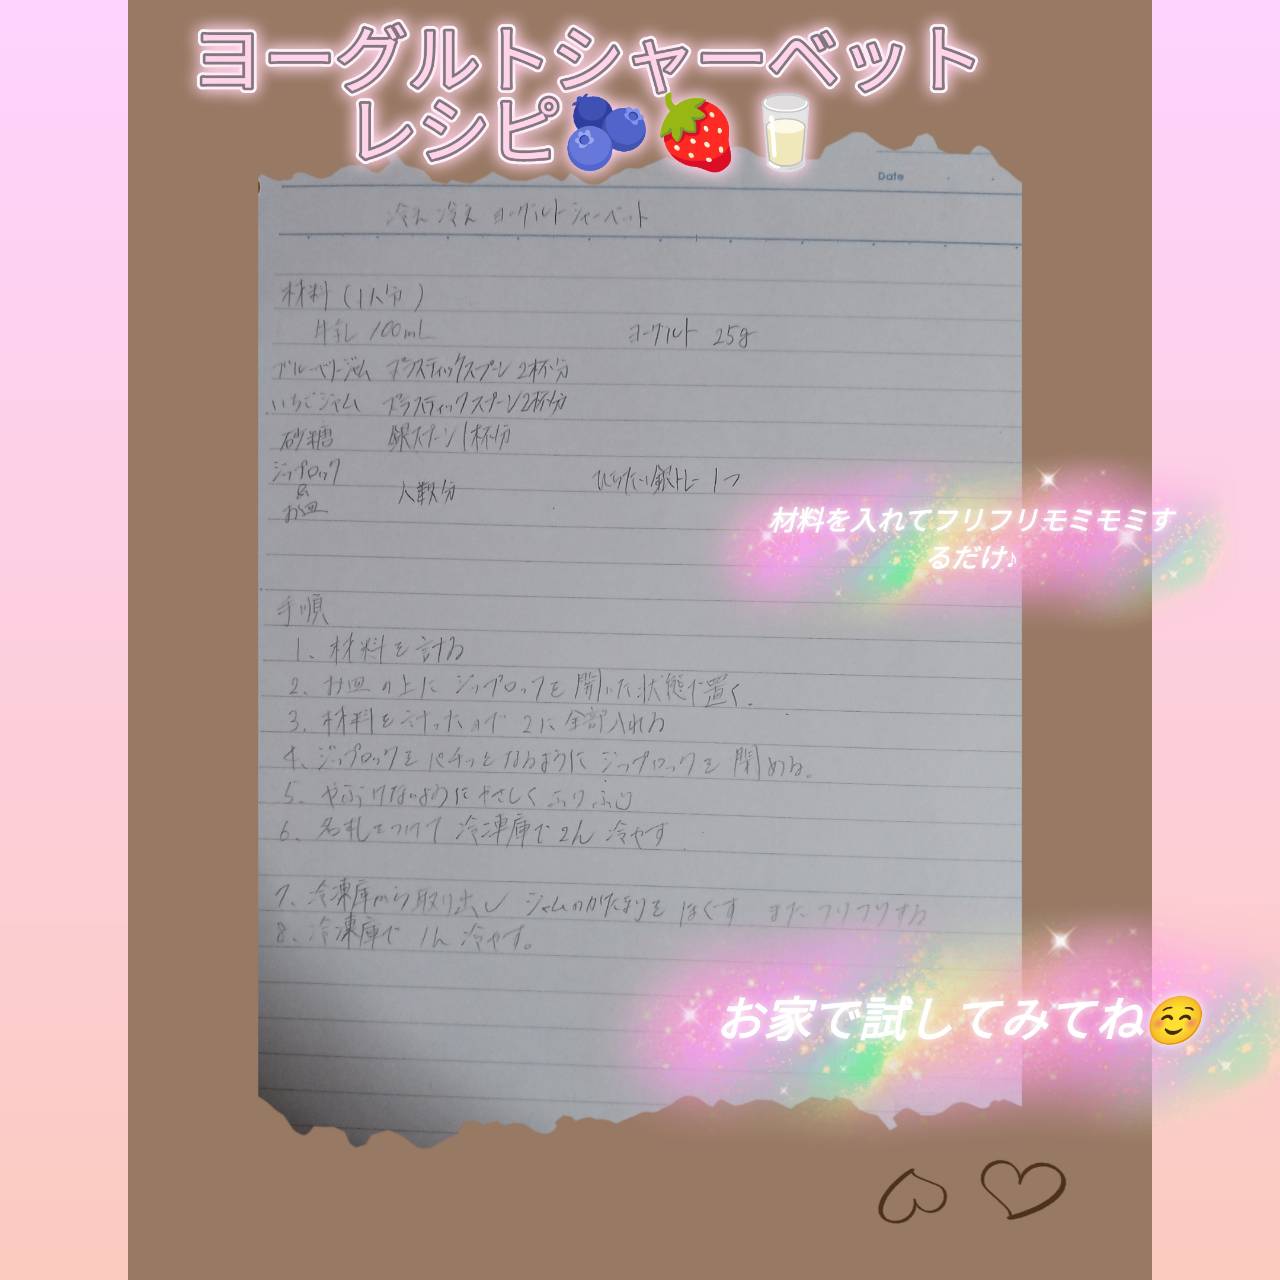 ヨーグルトシャーベット
レシピ
Date
冷え冷え ヨーグルトシャーベット
材料 (1人分)
牛乳 100mL ヨーグルト 25g
ブルーベリージャム プラスティックスプーン 2杯分
いちごジャム プラスティックスプーン2杯分
砂糖 銀スプーン1杯分
ジップロック
&
お皿 人数分 ひらたい銀トレー 1つ
材料を入れてフリフリモミモミす
るだけ♪
手順
1、材料を計る
2、お皿の上に ジップロックを開いた状態で置く.
3、材料を計ったので 2に全部入れる
4、ジップロックをパチッとなるように ジップロックを閉める。
5、やぶけないようにやさしくふりふり
6、名札をつけて 冷凍庫で2h 冷やす
7、冷凍庫から取り出し ジャムのかたまりを ほぐす またフリフリする
8、冷凍庫で 1h 冷やす。
お家で試してみてね☺️